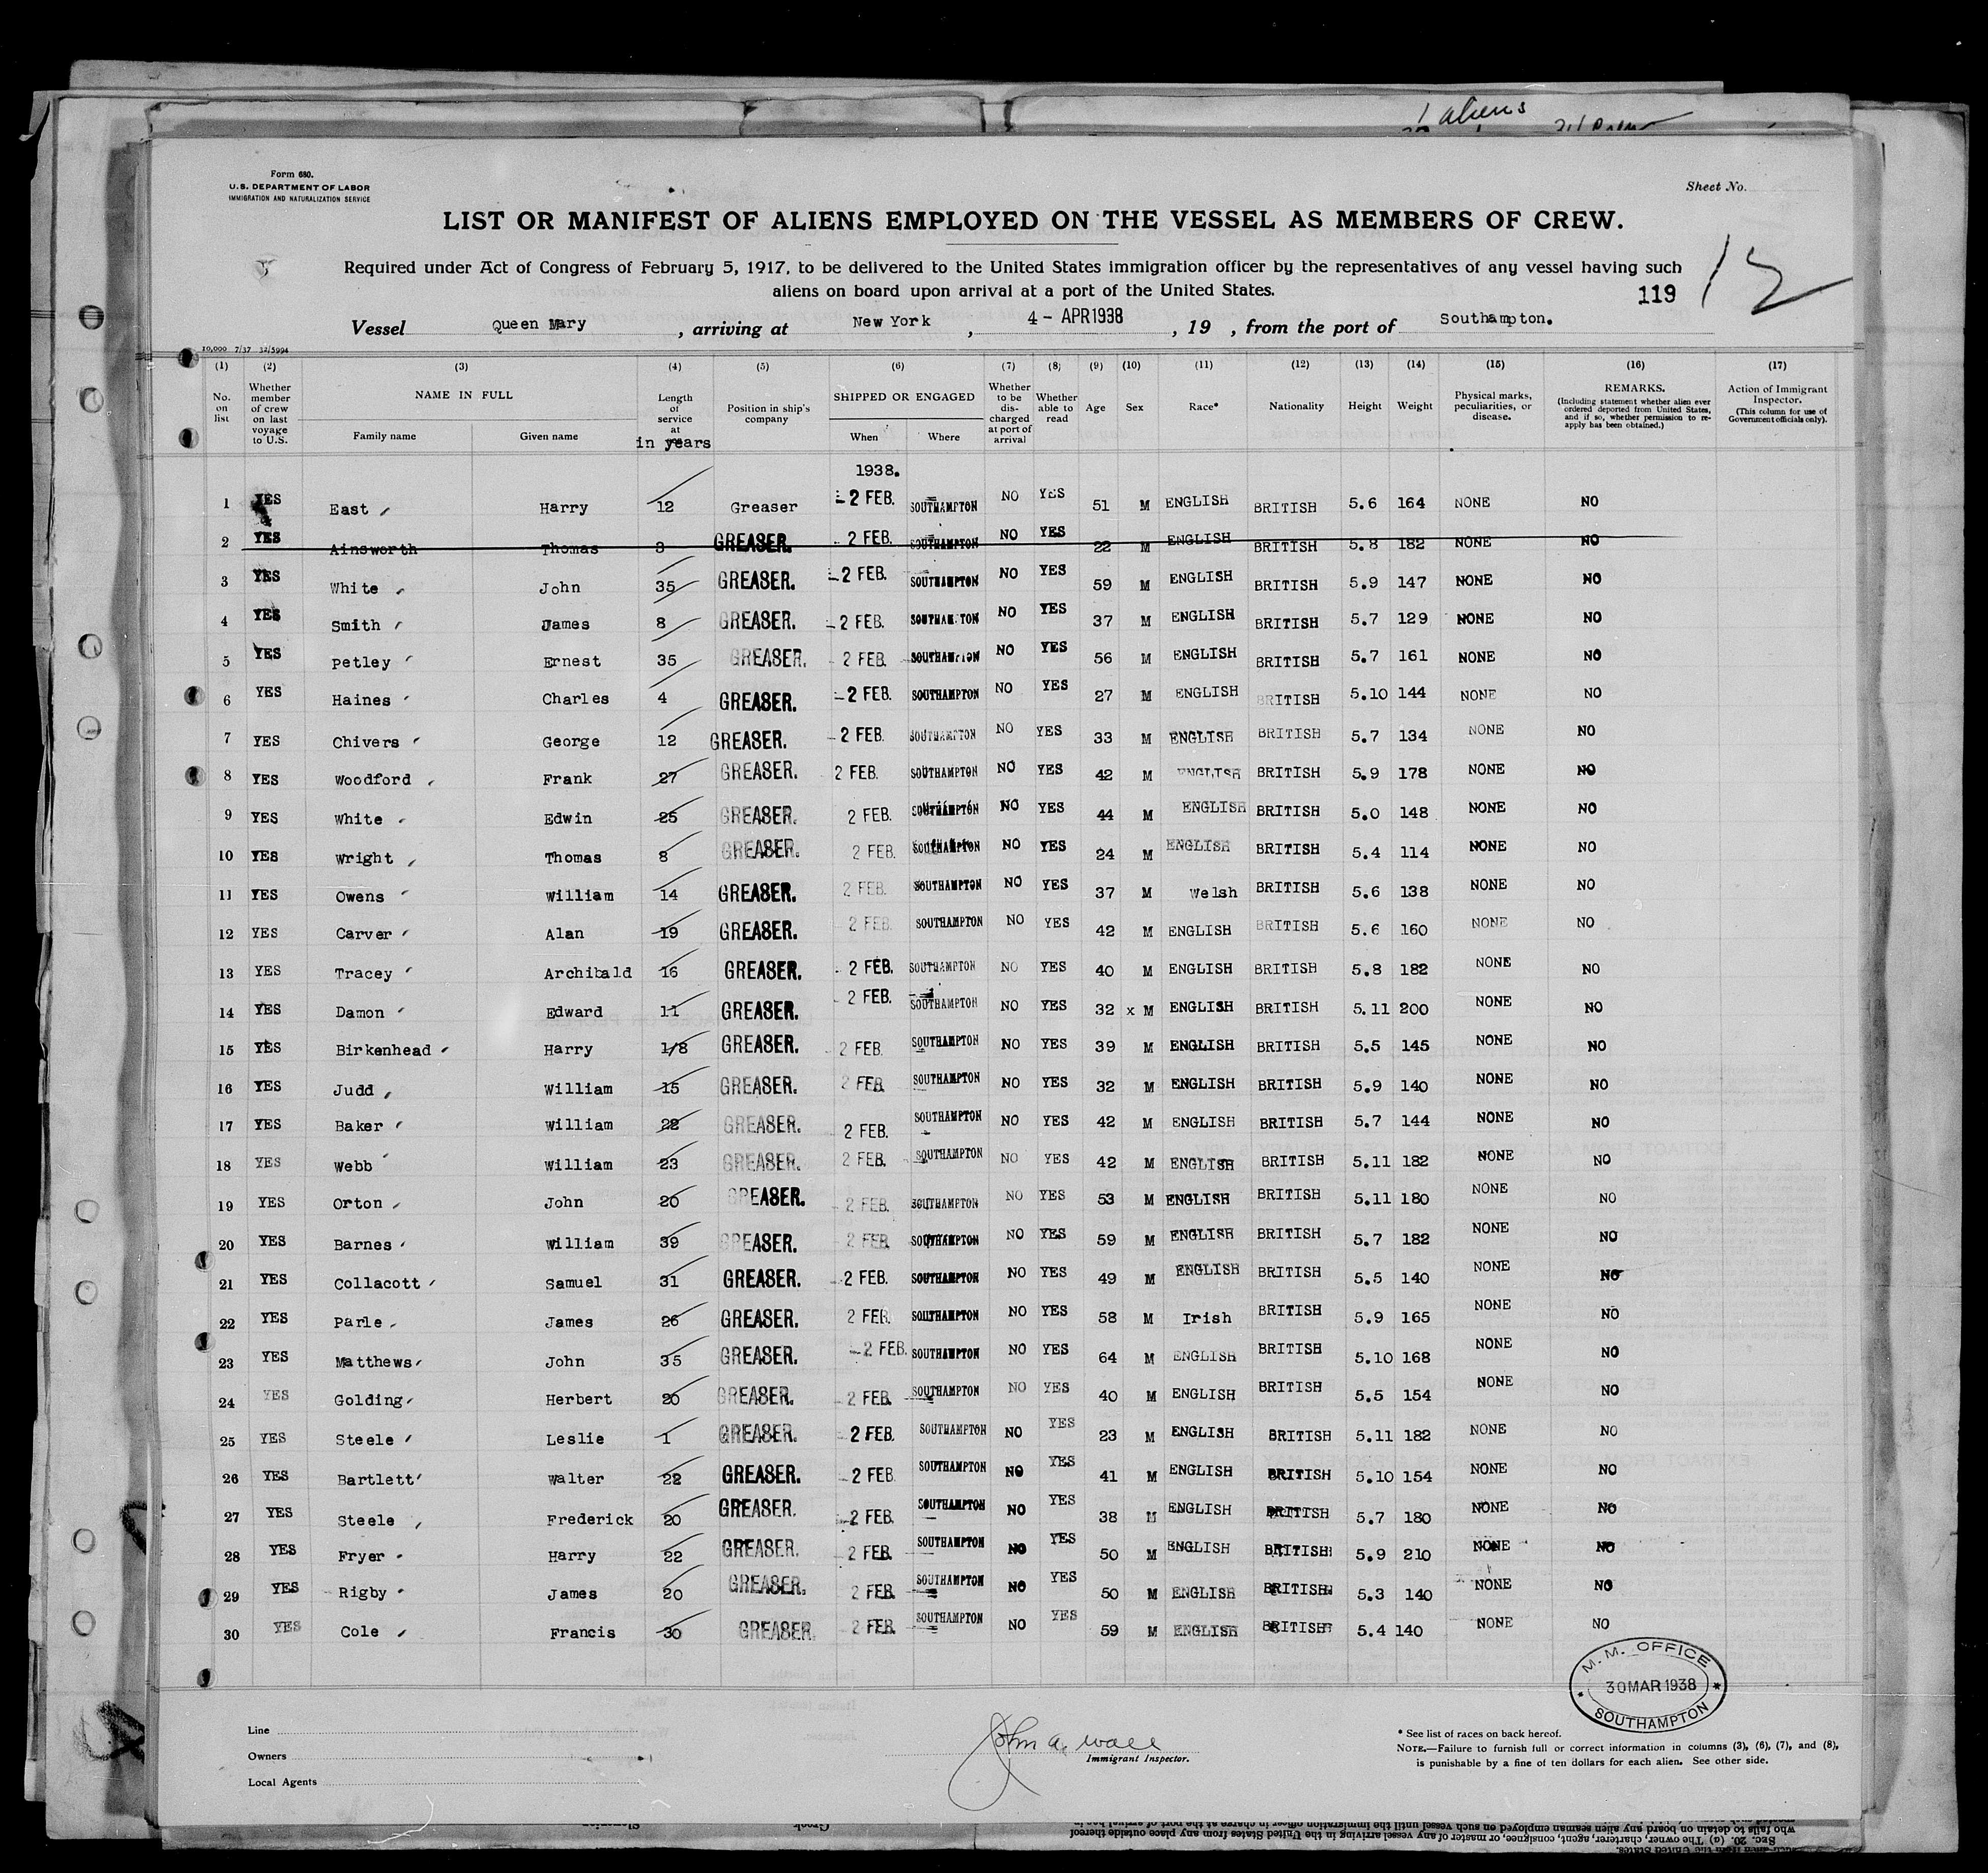 1 aliens
Form 680.
U.S. DEPARTMENT OF LABOR
IMMIGRATION AND NATURALIZATION SERVICE
Sheet No.
LIST OR MANIFEST OF ALIENS EMPLOYED ON THE VESSEL AS MEMBERS OF CREW.
Required under Act of Congress of February 5, 1917, to be delivered to the United States immigration officer by the representatives of any vessel having such
aliens on board upon arrival at a port of the United States.
119
12
Vessel Queen Mary, arriving at New York, 4 - APR 1938, 19 , from the port of Southampton.
10,000 7/37 32/5994
(1) (2) (3) (4) (5) (6) (7) (8) (9) (10) (11) (12) (13) (14) (15) (16) (17)
No. on list
Whether member of crew on last voyage to U.S.
NAME IN FULL
Family name Given name
Length of service at
in years
Position in ship's company
SHIPPED OR ENGAGED
When Where
Whether to be discharged at port of arrival
Whether able to read
Age Sex Race* Nationality Height Weight
Physical marks, peculiarities, or disease.
REMARKS.
(Including statement whether alien ever ordered deported from United States, and if so, whether permission to reapply has been obtained.)
Action of Immigrant Inspector.
(This column for use of Government officials only).
1938.
1 YES East Harry 12 Greaser - 2 FEB. SOUTHAMPTON NO YES 51 M ENGLISH BRITISH 5.6 164 NONE NO
2 YES Ainsworth Thomas 3 GREASER. - 2 FEB. SOUTHAMPTON NO YES 22 M ENGLISH BRITISH 5.8 182 NONE NO
3 YES White John 35 GREASER. - 2 FEB. SOUTHAMPTON NO YES 59 M ENGLISH BRITISH 5.9 147 NONE NO
4 YES Smith James 8 GREASER. - 2 FEB. SOUTHAMPTON NO YES 37 M ENGLISH BRITISH 5.7 129 NONE NO
5 YES Petley Ernest 35 GREASER. - 2 FEB. SOUTHAMPTON NO YES 56 M ENGLISH BRITISH 5.7 161 NONE NO
6 YES Haines Charles 4 GREASER. - 2 FEB. SOUTHAMPTON NO YES 27 M ENGLISH BRITISH 5.10 144 NONE NO
7 YES Chivers George 12 GREASER. - 2 FEB. SOUTHAMPTON NO YES 33 M ENGLISH BRITISH 5.7 134 NONE NO
8 YES Woodford Frank 27 GREASER. 2 FEB. SOUTHAMPTON NO YES 42 M ENGLISH BRITISH 5.9 178 NONE NO
9 YES White Edwin 25 GREASER. 2 FEB. SOUTHAMPTON NO YES 44 M ENGLISH BRITISH 5.0 148 NONE NO
10 YES Wright Thomas 8 GREASER. 2 FEB. SOUTHAMPTON NO YES 24 M ENGLISH BRITISH 5.4 114 NONE NO
11 YES Owens William 14 GREASER. 2 FEB. SOUTHAMPTON NO YES 37 M Welsh BRITISH 5.6 138 NONE NO
12 YES Carver Alan 19 GREASER. 2 FEB. SOUTHAMPTON NO YES 42 M ENGLISH BRITISH 5.6 160 NONE NO
13 YES Tracey Archibald 16 GREASER. - 2 FEB. SOUTHAMPTON NO YES 40 M ENGLISH BRITISH 5.8 182 NONE NO
14 YES Damon Edward 11 GREASER. - 2 FEB. SOUTHAMPTON NO YES 32 x M ENGLISH BRITISH 5.11 200 NONE NO
15 YES Birkenhead Harry 1/8 GREASER. 2 FEB. SOUTHAMPTON NO YES 39 M ENGLISH BRITISH 5.5 145 NONE NO
16 YES Judd William 15 GREASER. 2 FEB. SOUTHAMPTON NO YES 32 M ENGLISH BRITISH 5.9 140 NONE NO
17 YES Baker William 22 GREASER. 2 FEB. SOUTHAMPTON NO YES 42 M ENGLISH BRITISH 5.7 144 NONE NO
18 YES Webb William 23 GREASER. 2 FEB. SOUTHAMPTON NO YES 42 M ENGLISH BRITISH 5.11 182 NONE NO
19 YES Orton John 20 GREASER. 2 FEB. SOUTHAMPTON NO YES 53 M ENGLISH BRITISH 5.11 180 NONE NO
20 YES Barnes William 39 GREASER. 2 FEB. SOUTHAMPTON NO YES 59 M ENGLISH BRITISH 5.7 182 NONE NO
21 YES Collacott Samuel 31 GREASER. - 2 FEB. SOUTHAMPTON NO YES 49 M ENGLISH BRITISH 5.5 140 NONE NO
22 YES Parle James 26 GREASER. 2 FEB. SOUTHAMPTON NO YES 58 M Irish BRITISH 5.9 165 NONE NO
23 YES Matthews John 35 GREASER. - 2 FEB. SOUTHAMPTON NO YES 64 M ENGLISH BRITISH 5.10 168 NONE NO
24 YES Golding Herbert 20 GREASER. - 2 FEB. SOUTHAMPTON NO YES 40 M ENGLISH BRITISH 5.5 154 NONE NO
25 YES Steele Leslie 1 GREASER. - 2 FEB. SOUTHAMPTON NO YES 23 M ENGLISH BRITISH 5.11 182 NONE NO
26 YES Bartlett Walter 22 GREASER. - 2 FEB. SOUTHAMPTON NO YES 41 M ENGLISH BRITISH 5.10 154 NONE NO
27 YES Steele Frederick 20 GREASER. - 2 FEB. SOUTHAMPTON NO YES 38 M ENGLISH BRITISH 5.7 180 NONE NO
28 YES Fryer Harry 22 GREASER. - 2 FEB. SOUTHAMPTON NO YES 50 M ENGLISH BRITISH 5.9 210 NONE NO
29 YES Rigby James 20 GREASER. 2 FEB. SOUTHAMPTON NO YES 50 M ENGLISH BRITISH 5.3 140 NONE NO
30 YES Cole Francis 30 GREASER. 2 FEB. SOUTHAMPTON NO YES 59 M ENGLISH BRITISH 5.4 140 NONE NO
M. M. OFFICE
30 MAR 1938
SOUTHAMPTON
Line
Owners
Local Agents
John A. Wall
Immigrant Inspector.
* See list of races on back hereof.
NOTE.—Failure to furnish full or correct information in columns (3), (6), (7), and (8),
is punishable by a fine of ten dollars for each alien. See other side.
who fails to detain on board any alien seaman employed on such vessel until the immigration officer in charge at the port of arrival has in
Sec. 20. (a) The owner, charterer, agent, consignee, or master of any vessel arriving in the United States from any place outside thereof